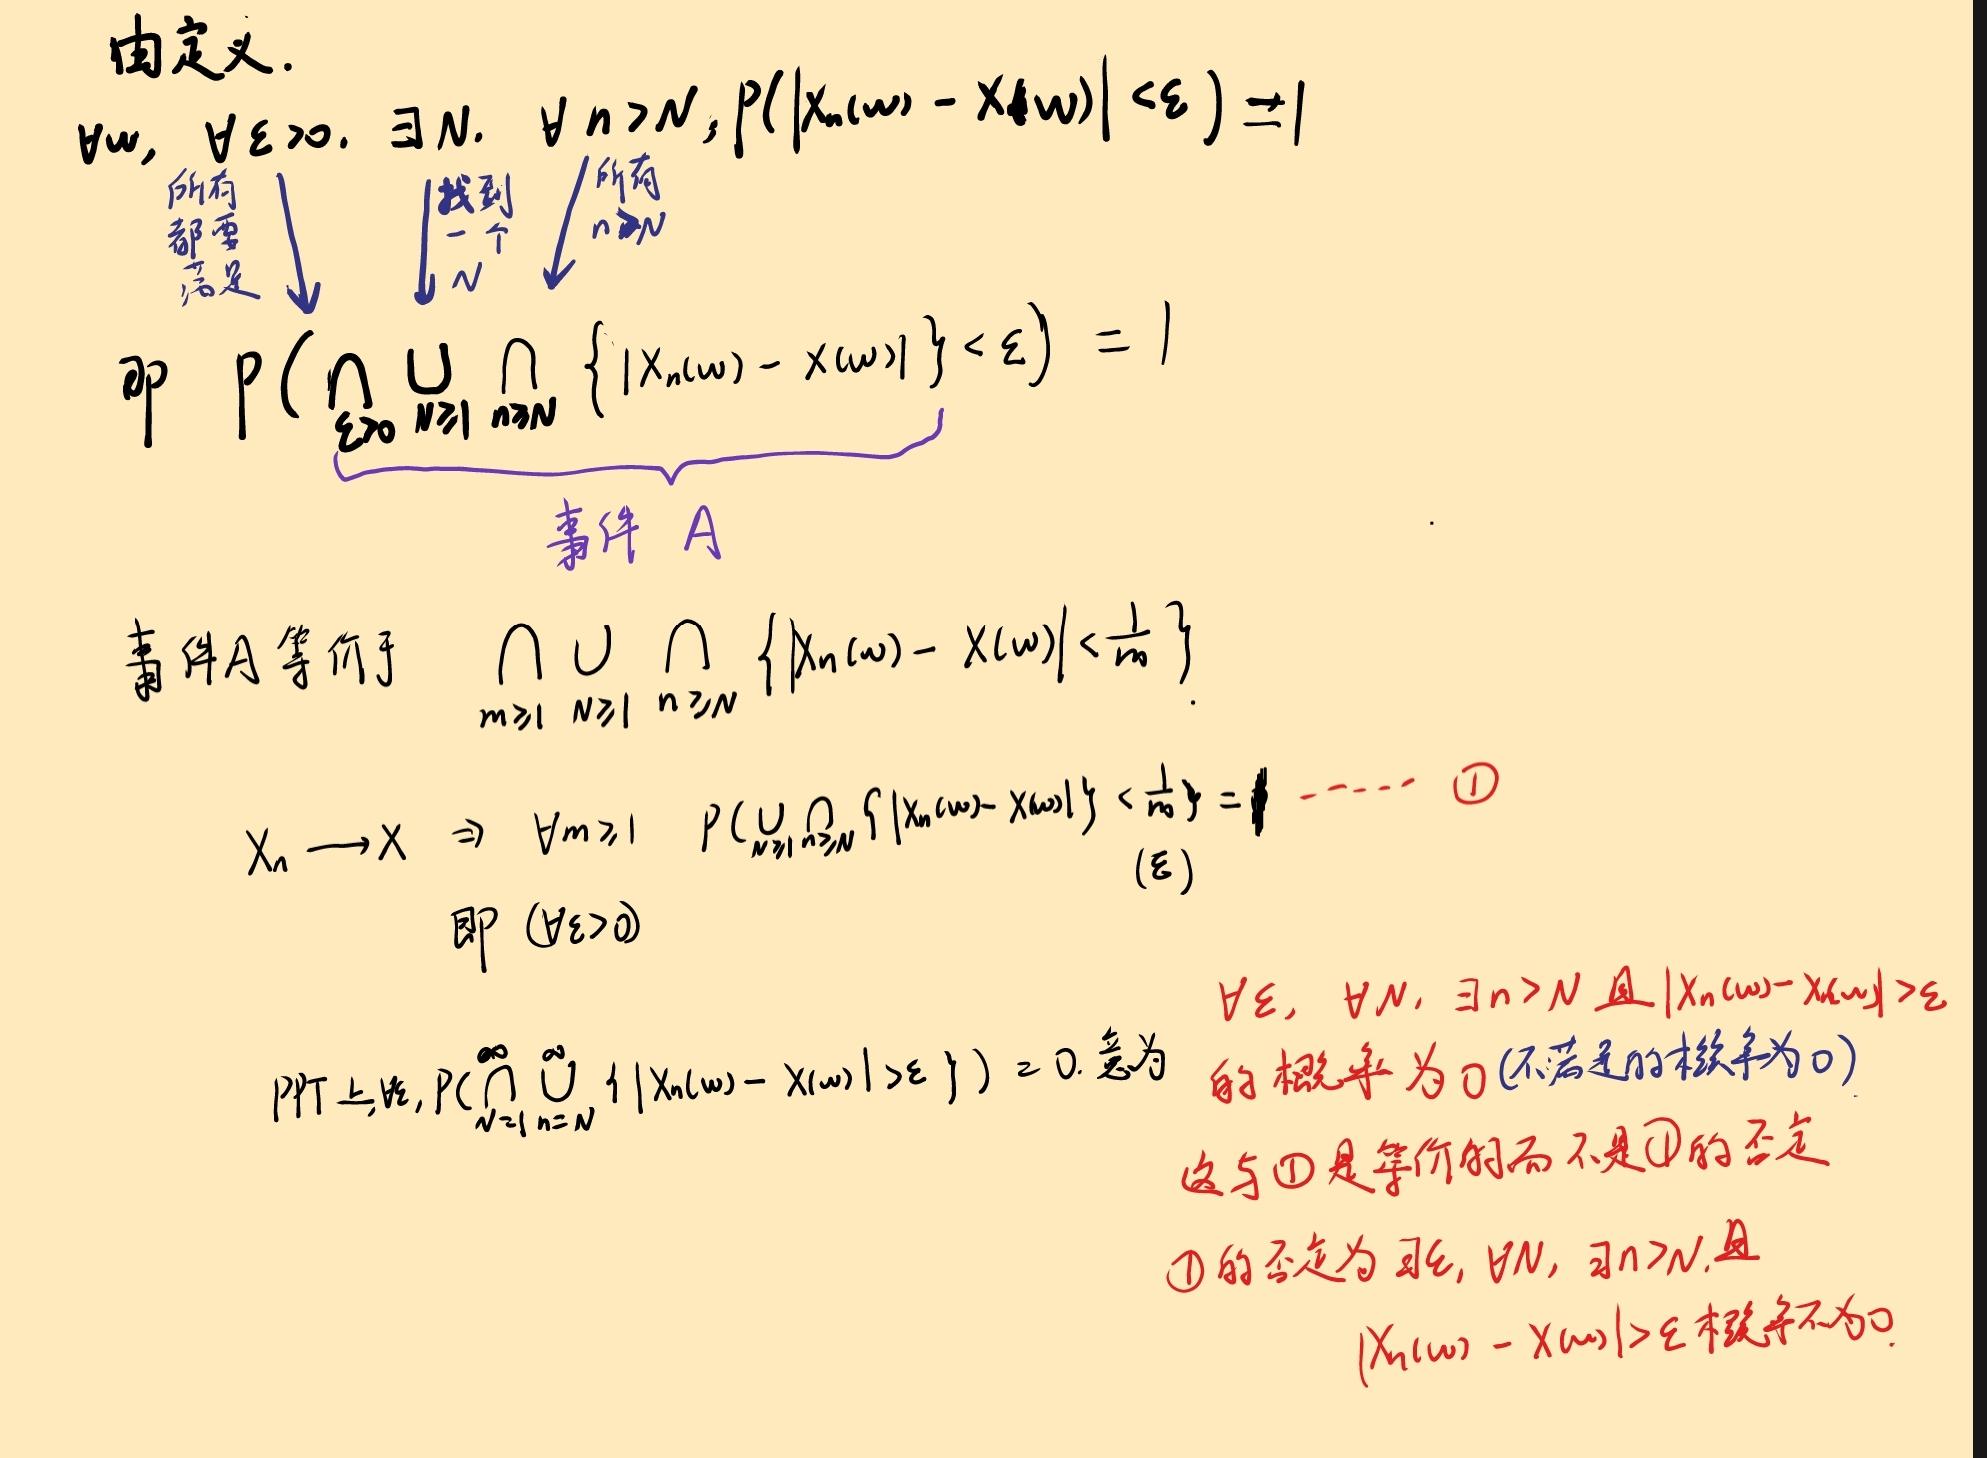 由定义.
∀w, ∀ε>0. ∃N. ∀n>N, P(|Xn(w) - X(w)| <ε) = 1
所有都要满足
找到一个N
所有n≥N
即 P(∩ε>0 ∪N≥1 ∩n≥N {|Xn(w) - X(w)|} < ε) = 1
事件 A
事件A等价于 ∩m≥1 ∪N≥1 ∩n≥N {|Xn(w) - X(w)| < 1/m}.
Xn → X ⇒ ∀m≥1 P(∪N≥1 ∩n≥N {|Xn(w) - X(w)|} < 1/m} = 1 ······ ①
(ε)
即 (∀ε>0)
PPT上,∀ε, P(∩N=1^∞ ∪n=N^∞ {|Xn(w) - X(w)| >ε}) = 0. 意为
∀ε, ∀N. ∃n>N 且|Xn(w) - X(w)| >ε
的概率为0(不满足的概率为0)
这与①是等价的而不是①的否定
①的否定为 ∃ε, ∀N, ∃n>N.且
|Xn(w) - X(w)|>ε概率不为0.